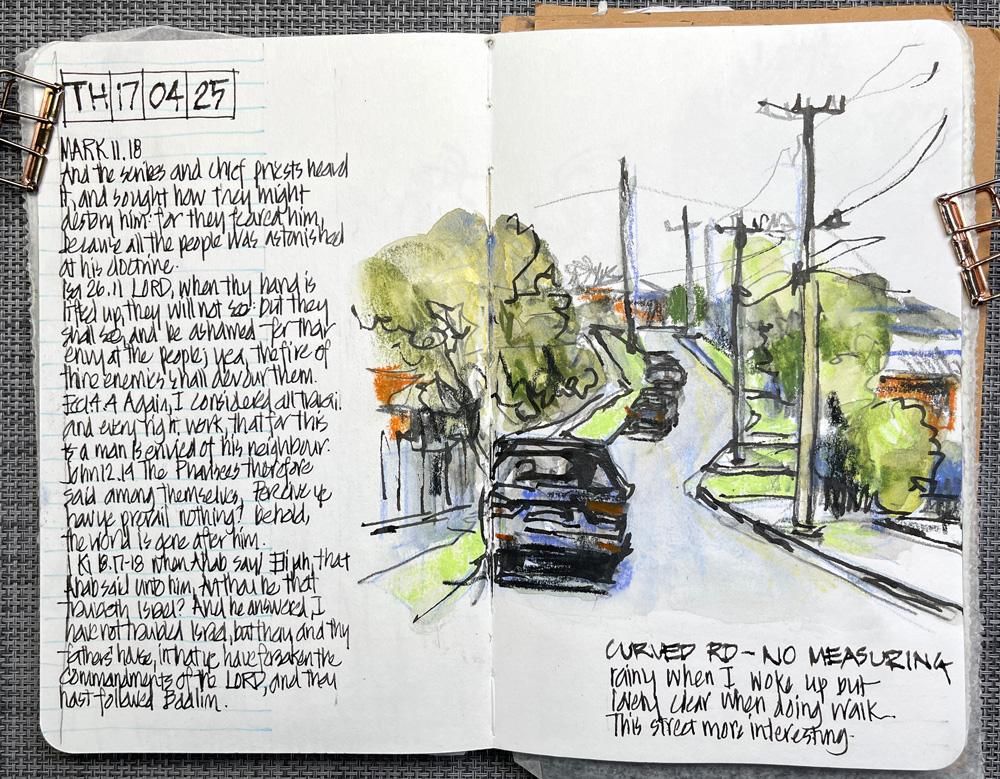 TH 17 04 25
MARK 11.18
And the scribes and chief priests heard
it, and sought how they might
destroy him: for they feared him,
because all the people was astonished
at his doctrine.
Isa 26.11 LORD, when thy hand is
lifted up, they will not see: but they
shall see, and be ashamed for their
envy at the people; yea, the fire of
thine enemies shall devour them.
Ecl 4.4 Again, I considered all travail
and every right work, that for this
is a man is envied of his neighbour.
John 12.19 The Pharisees therefore
said among themselves, Perceive ye
how ye prevail nothing? behold,
the world is gone after him.
1 Ki 18.17-18 when Ahab saw Elijah, that
Ahab said unto him, Art thou he that
troubleth Israel? And he answered, I
have not troubled Israel, but thou, and thy
fathers' house, in that ye have forsaken the
commandments of the LORD, and thou
hast followed Baalim.
CURVED RD - NO MEASURING
rainy when I woke up but
fairly clear when doing walk.
This street more interesting.